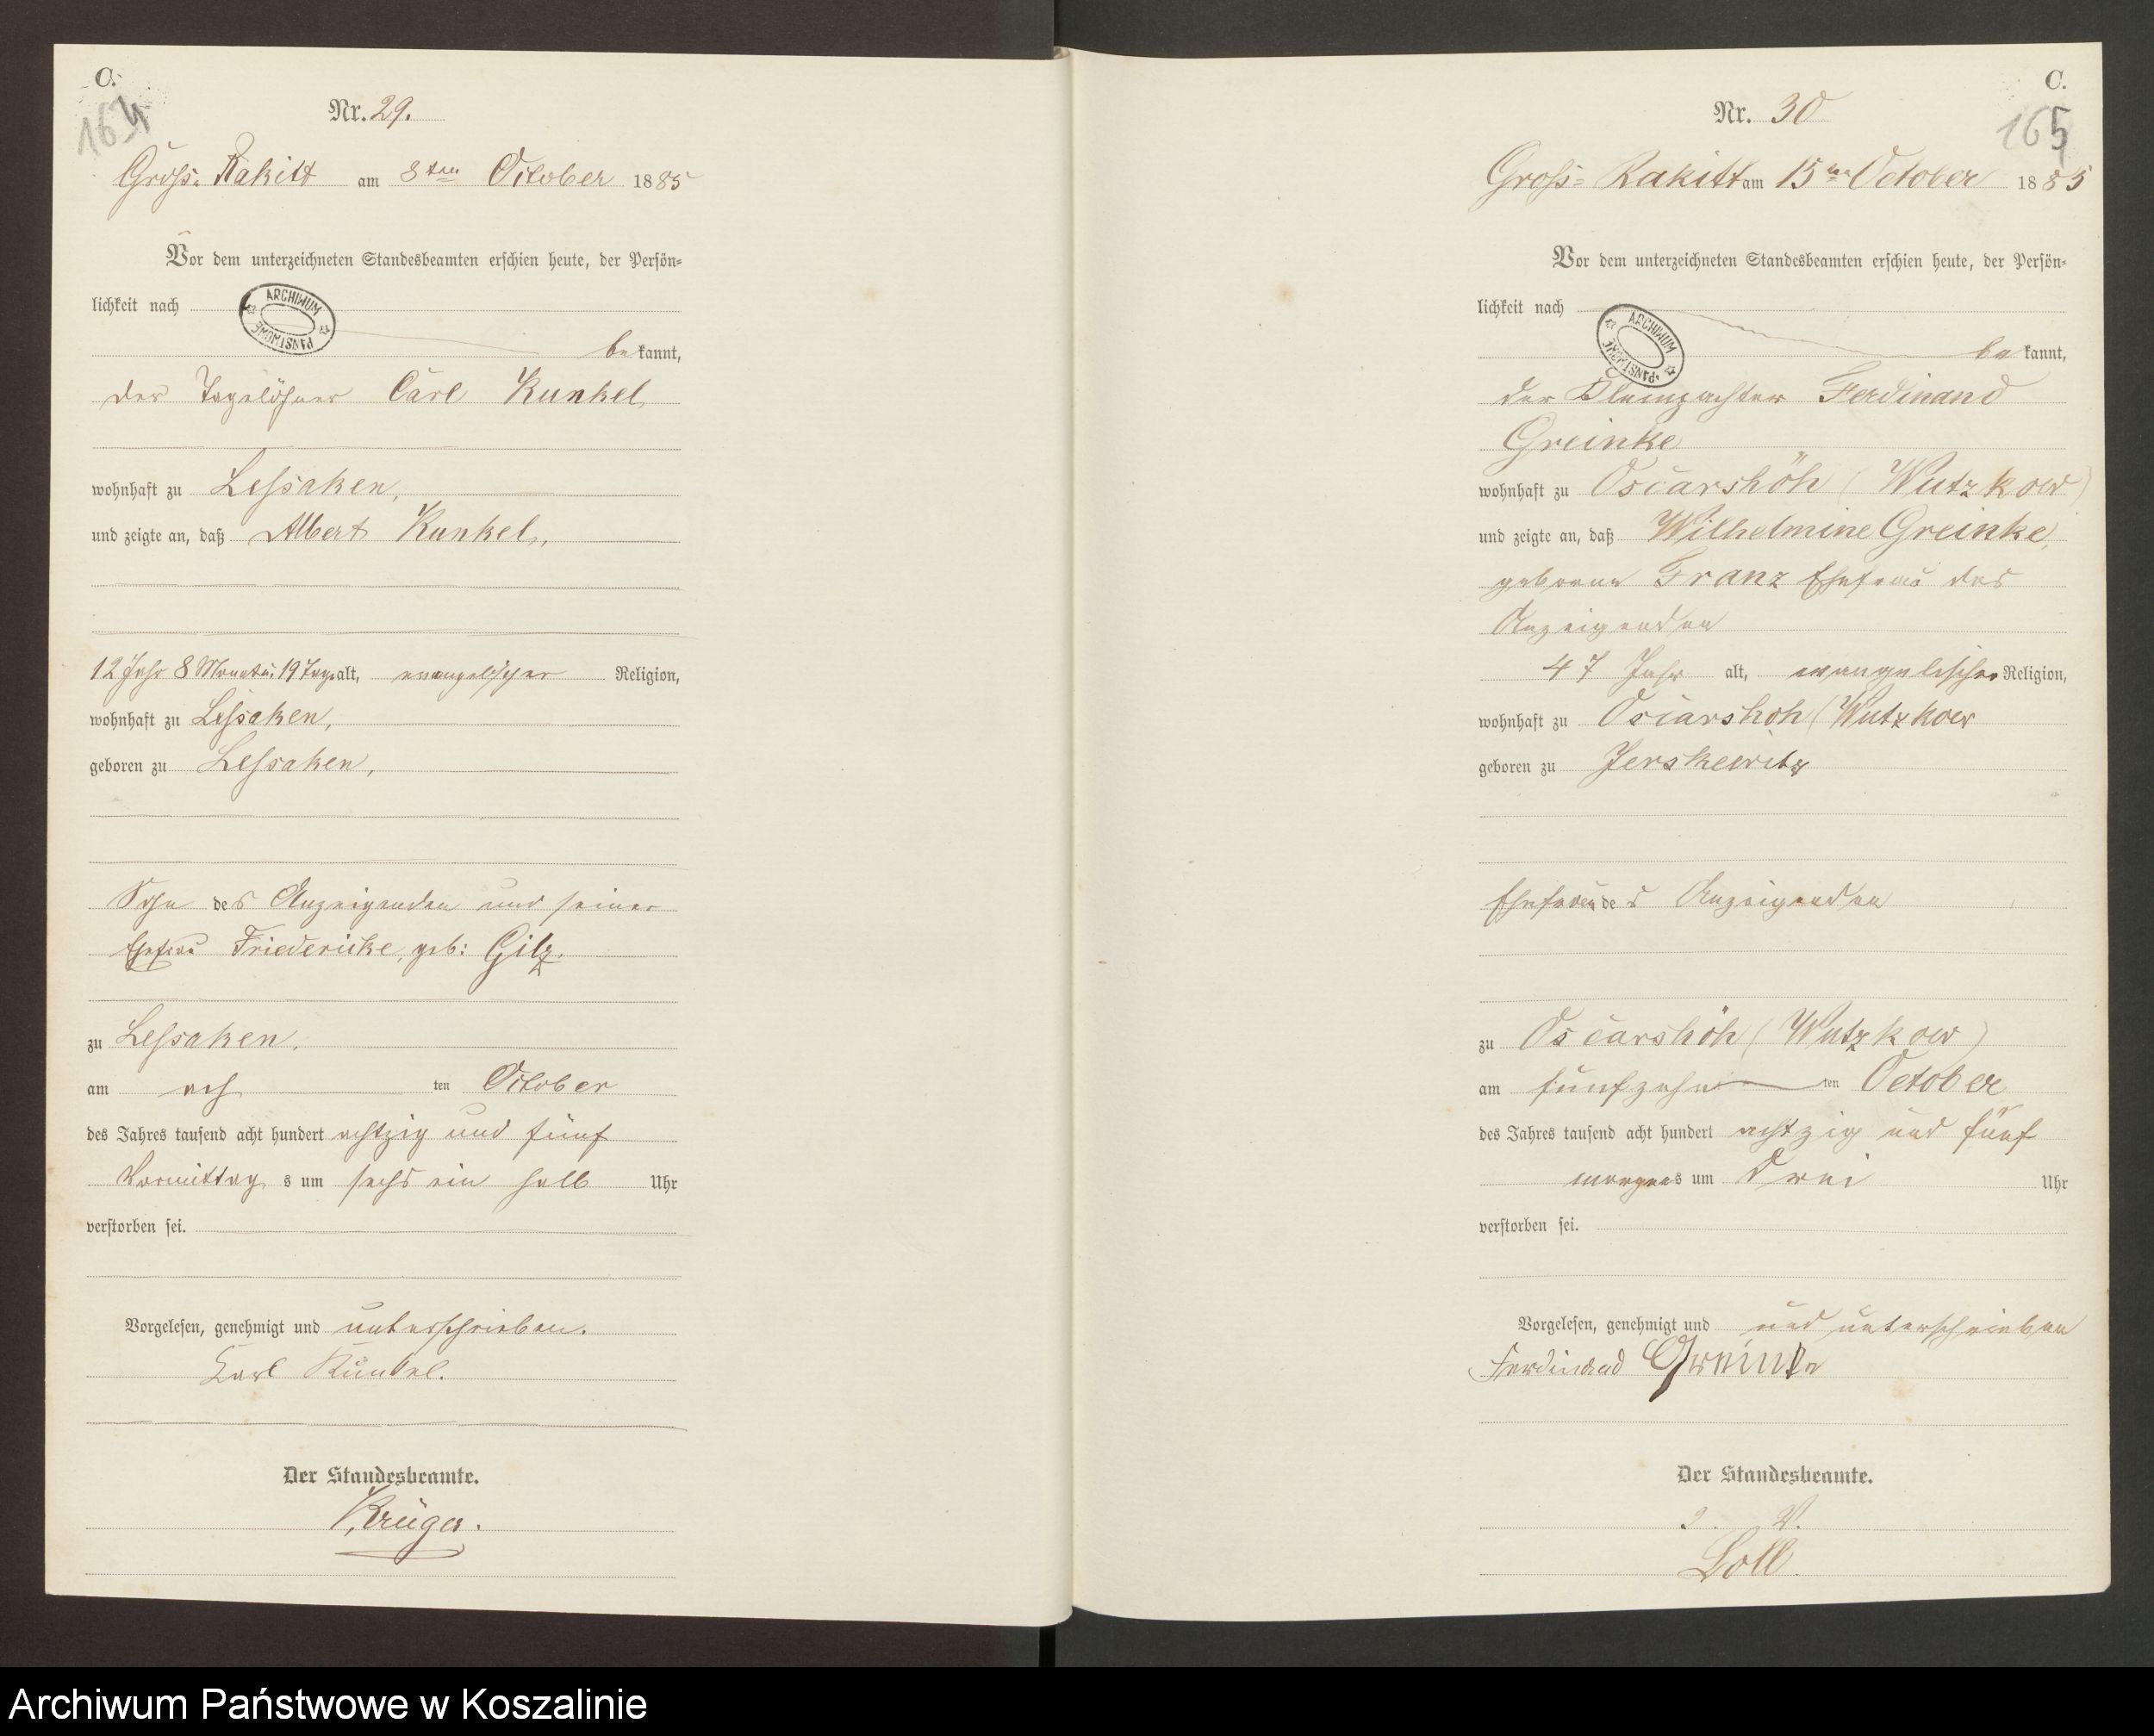 C.
164
Nr. 29.
Gross- Rakitt am 8ten October 1885
Vor dem unterzeichneten Standesbeamten erschien heute, der Persön-
lichkeit nach
ARCHIWUM PAŃSTWOWE
bekannt,
der Tagelöhner Carl Kunkel,
wohnhaft zu Lessaken,
und zeigte an, daß Albert Kunkel,
12 Jahr 8 Monat u. 19 Tage alt, evangelischer Religion,
wohnhaft zu Lessaken,
geboren zu Lessaken,
Sohn des Anzeigenden und seiner
Ehefrau Friedericke, geb: Gilz.
zu Lessaken,
am ach ten October
des Jahres tausend acht hundert achtzig und fünf
Vormittag s um sechs ein halb Uhr
verstorben sei.
Vorgelesen, genehmigt und unterschrieben.
Karl Kunkel.
Der Standesbeamte.
Krüger.
C.
165
Nr. 30
Gross- Rakitt am 15ten October 1885
Vor dem unterzeichneten Standesbeamten erschien heute, der Persön-
lichkeit nach
ARCHIWUM PAŃSTWOWE
bekannt,
der Ferdinand
Greinke
wohnhaft zu Oscarshöh (Wutzkow)
und zeigte an, daß Wilhelmine Greinke,
geborene Franz Ehefrau des
Anzeigenden
47 Jahr alt, evangelischer Religion,
wohnhaft zu Oscarshöh (Wutzkow
geboren zu Jerskewitz
Ehefrau des Anzeigenden
zu Oscarshöh (Wutzkow)
am fünfzehn ten October
des Jahres tausend acht hundert achtzig und fünf
morgens um drei Uhr
verstorben sei.
Vorgelesen, genehmigt und und unterschrieben
Ferdinand Greinke
Der Standesbeamte.
I. V.
Loll
Archiwum Państwowe w Koszalinie